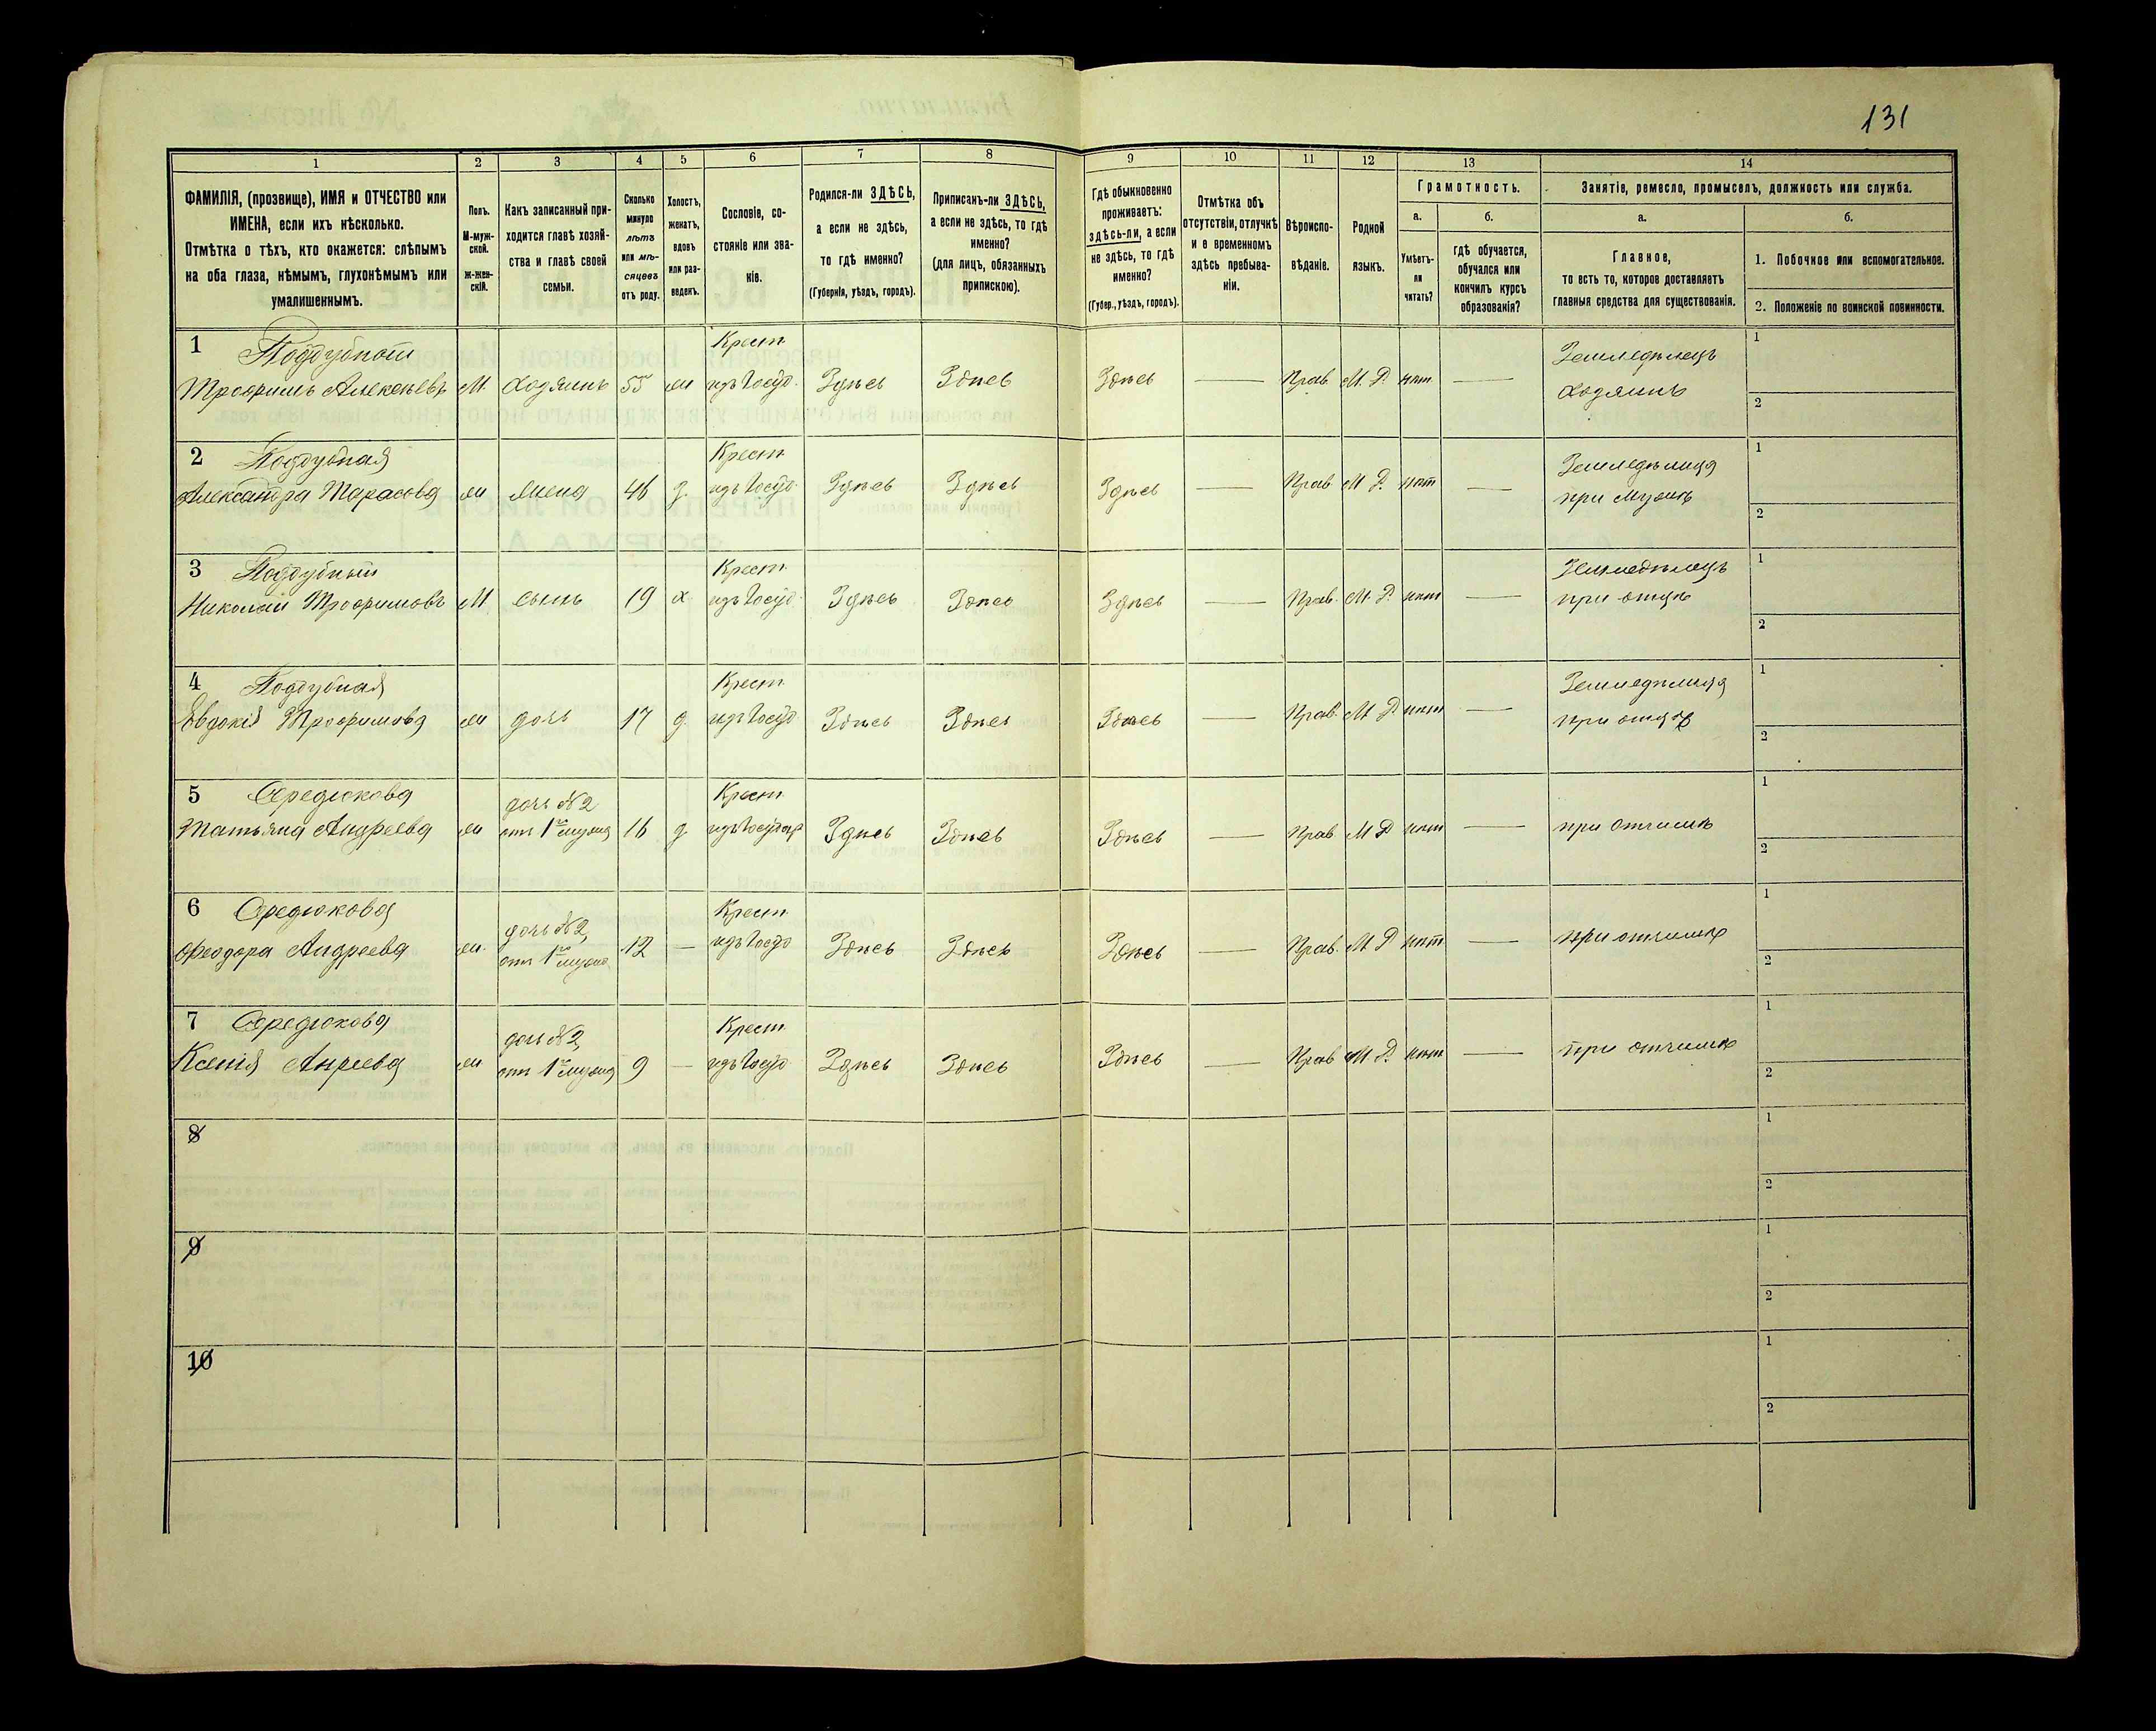 131
1 2 3 4 5 6 7 8 9 10 11 12 13 14
ФАМИЛІЯ, (прозвище), ИМЯ и ОТЧЕСТВО или
ИМЕНА, если ихъ нѣсколько.
Отмѣтка о тѣхъ, кто окажется: слѣпымъ
на оба глаза, нѣмымъ, глухонѣмымъ или
умалишеннымъ.
Полъ.
М-муж-
ской.
ж-жен-
скій.
Какъ записанный при-
ходится главѣ хозяй-
ства и главѣ своей
семьи.
Сколько
минуло
лѣтъ
или мѣ-
сяцевъ
отъ роду.
Холостъ,
женатъ,
вдовъ
или раз-
веденъ.
Сословіе, со-
стояніе или зва-
ніе.
Родился-ли ЗДѢСЬ,
а если не здѣсь,
то гдѣ именно?
(Губернія, уѣздъ, городъ).
Приписанъ-ли ЗДѢСЬ,
а если не здѣсь, то гдѣ
именно?
(для лицъ, обязанныхъ
припискою).
Гдѣ обыкновенно
проживаетъ:
здѣсь-ли, а если
не здѣсь, то гдѣ
именно?
(Губер., уѣздъ, городъ).
Отмѣтка объ
отсутствіи, отлучкѣ
и о временномъ
здѣсь пребыва-
ніи.
Вѣроиспо-
вѣданіе.
Родной
языкъ.
Грамотность.
а.
Умѣетъ-
ли
читать?
б.
гдѣ обучается,
обучался или
кончилъ курсъ
образованія?
Занятіе, ремесло, промыселъ, должность или служба.
а.
Главное,
то есть то, которое доставляетъ
главныя средства для существованія.
б.
1. Побочное или вспомогательное.
2. Положеніе по воинской повинности.
1 Поддубный Крест Земледѣлецъ 1
Трофимъ Алексѣевъ М хозяинъ 55 ж изъ Госуд. Здѣсь Здѣсь Здѣсь — Прав М. Р. нѣт — хозяинъ 2
2 Поддубная Крест Земледѣлица 1
Александра Тарасова ж жена 46 з. изъ Госуд. Здѣсь Здѣсь Здѣсь — Прав М Р. нѣт — при мужѣ 2
3 Поддубный Крест Земледѣлецъ 1
Николай Трофимовъ М сынъ 19 х изъ Госуд. Здѣсь Здѣсь Здѣсь — Прав. М. Р. нѣт — при отцѣ 2
4 Поддубная Крест Земледѣлица 1
Евдокія Трофимова ж дочь 17 д изъ Госуд Здѣсь Здѣсь Здѣсь — Прав. М Р нѣт — при отцѣ 2
5 Середюкова дочь №2 Крест 1
Татьяна Андреева ж отъ 1го мужа 16 д изъ Государ Здѣсь Здѣсь Здѣсь — Прав М Р нѣт — при отчимѣ 2
6 Середюкова дочь №2, Крест 1
Ѳеодора Андреева ж. отъ 1го мужа. 12 — изъ Госуд Здѣсь Здѣсь Здѣсь — Прав. М Р нѣт — при отчимѣ 2
7 Середюкова дочь №2, Крест 1
Ксенія Анреева ж отъ 1го мужа 9 — изъ Госуд Здѣсь Здѣсь Здѣсь — Прав М. Р. нѣт — при отчимѣ 2
8 1
2
9 1
2
10 1
2